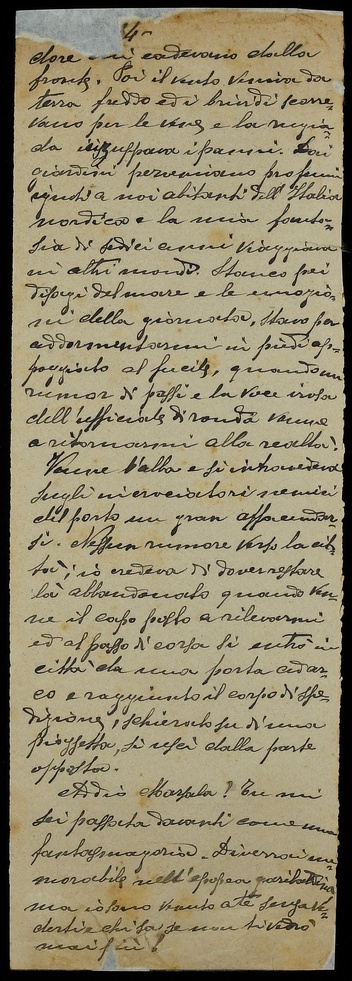 4
dore mi cadevano dalla
fronte. Poi il vento veniva da
terra freddo ed i brividi scorre-
vano per le vene e la rugia-
da inzuppava i panni. Dai
giardini pervenivano profumi
ignoti a noi abitanti dell'Italia
nordica e la mia fanta-
sia di sedici anni viaggiava
in altri mondi. Stanco pei
disagi del mare e le emozio-
ni della giornata, stavo per
addormentarmi in piedi ap-
poggiato al fucile, quando un
rumor di passi e la voce irosa
dell'ufficiale di ronda venne
a ritornarmi alla realtà.
Venne l'alba e si intravedeva
sugli incrociatori nemici
del porto un gran affaccendar-
si. Nessun rumore verso la cit-
tà; io credeva di dover restare
là abbandonato quando ven-
ne il capo posto a rilevarmi
ed al passo di corsa si entrò in
città da una porta ad ar-
co e raggiunto il corpo di spe-
dizione, schierato su di una
piazzetta, si uscì dalla parte
opposta.
Addio Marsala! Tu mi
sei passata davanti come una
fantasmagoria. Diverrai me-
morabile nell'epopea garibaldina
ma io sono venuto a te senza ve-
derti e chi sa se non ti vedrò
mai più!